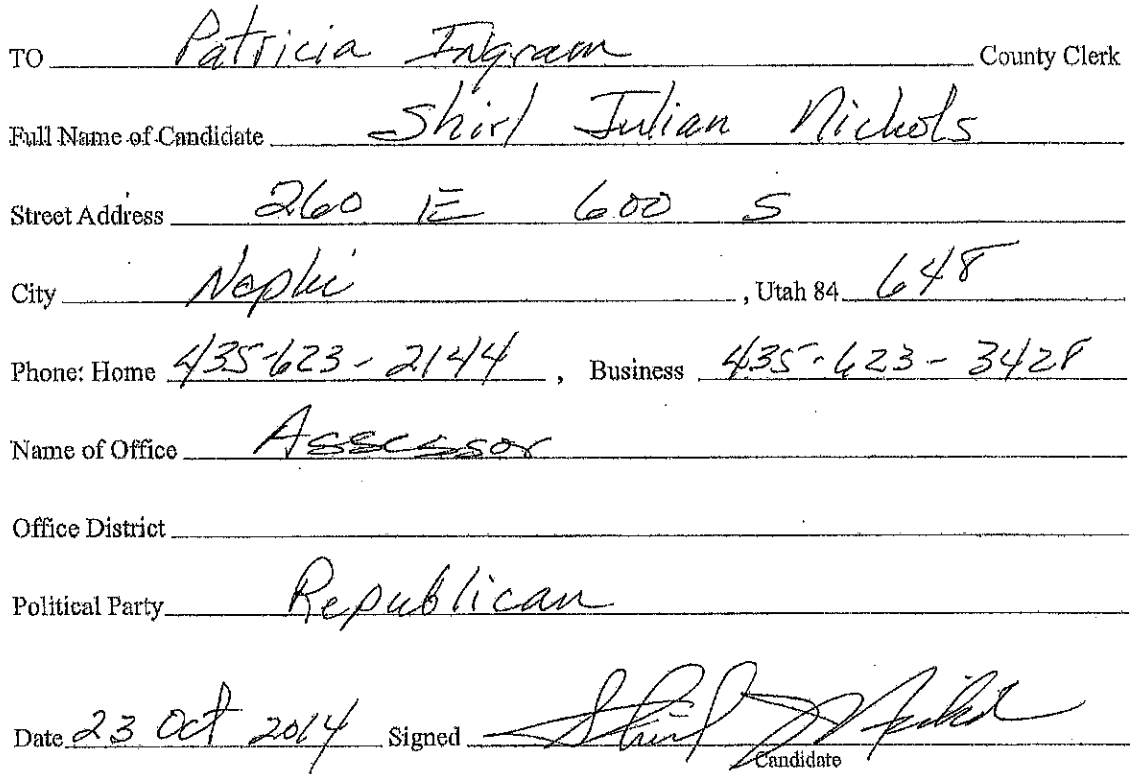 TO Patricia Ingram County Clerk
Full Name of Candidate Shirl Julian Nichols
Street Address 260 E 600 S
City Nephi , Utah 84 648
Phone: Home 435-623-2144 , Business 435-623-3428
Name of Office Assessor
Office District
Political Party Republican
Date 23 Oct 2014 Signed Shirl J Nichols
Candidate